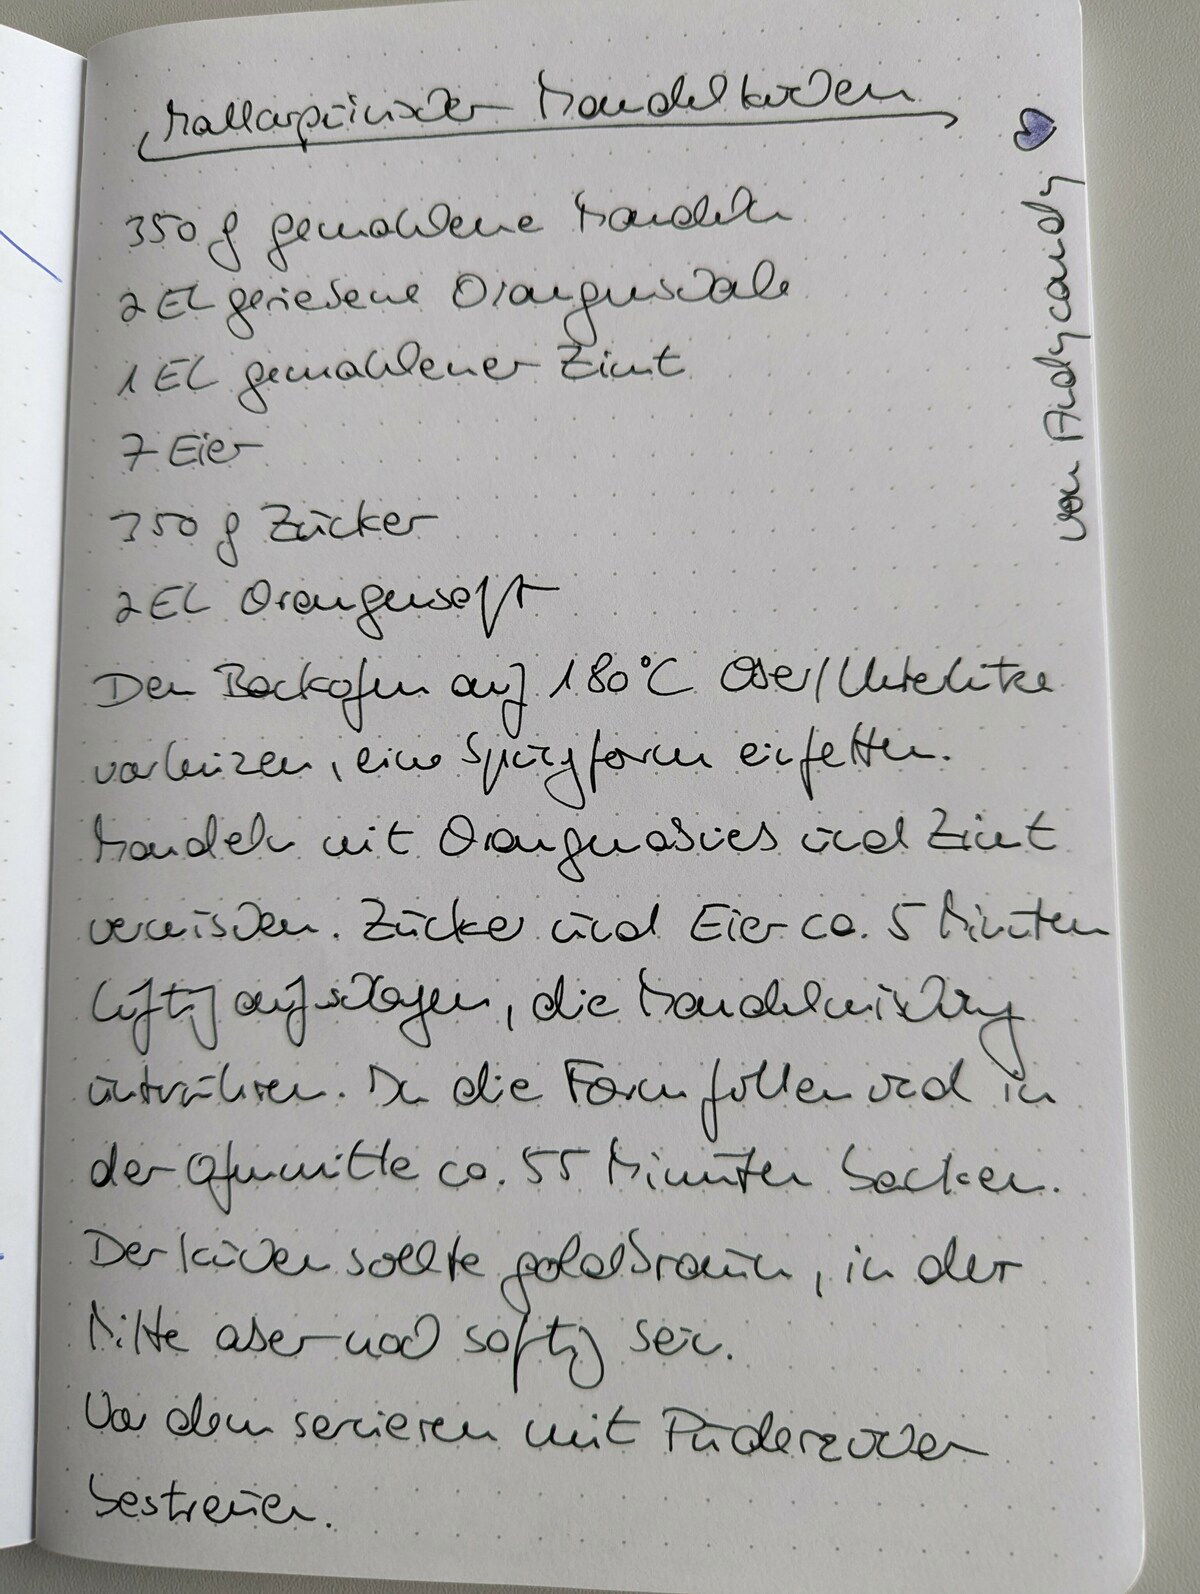 Mallorquinischer Mandelkuchen
350 g gemahlene Mandeln
2 EL geriebene Orangenschale
1 EL gemahlener Zimt
7 Eier
350 g Zucker
2 EL Orangensaft
Den Backofen auf 180°C Ober/Unterhitze
vorheizen, eine Springform einfetten.
Mandeln mit Orangenabrieb und Zimt
vermischen. Zucker und Eier ca. 5 Minuten
luftig aufschlagen, die Mandelmischung
unterrühren. In die Form füllen und in
der Ofenmitte ca. 55 Minuten backen.
Der Kuchen sollte goldbraun, in der
Mitte aber noch saftig sein.
Vor dem servieren mit Puderzucker
bestreuen.
von Andycandy